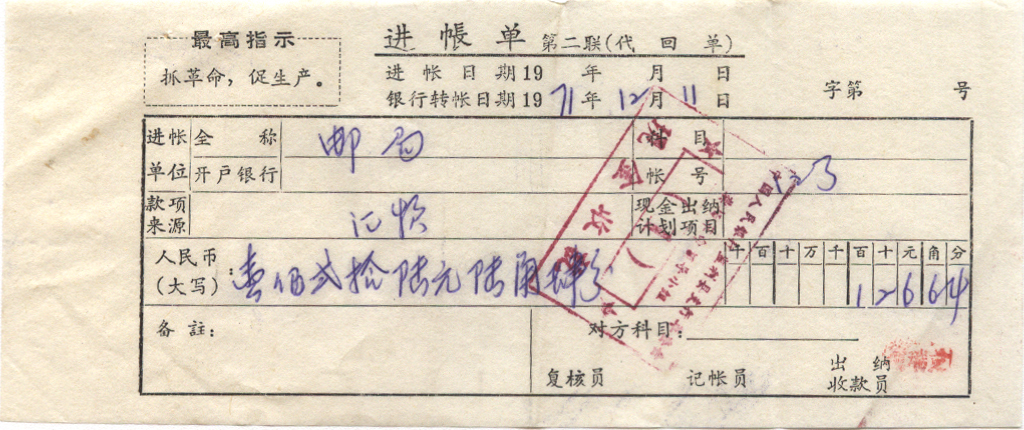 最高指示
抓革命，促生产。
进帐单 第二联(代回单)
进帐日期19 年 月 日
银行转帐日期1971年12月11日
字第 号
进帐单位 全称 邮局 科目
开户银行 帐号 123
款项来源 汇款 现金出纳计划项目
人民币(大写): 壹佰弍拾陆元陆角肆分
千百十万千百十元角分
12664
备註: 对方科目:
复核员 记帐员 出纳收款员
现金收讫